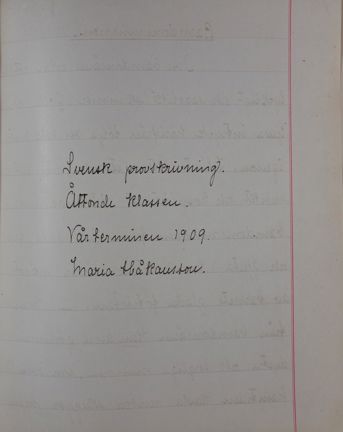 Svensk provskrivning.
Åttonde klassen.
Vårterminen 1909.
Maria Håkanston.